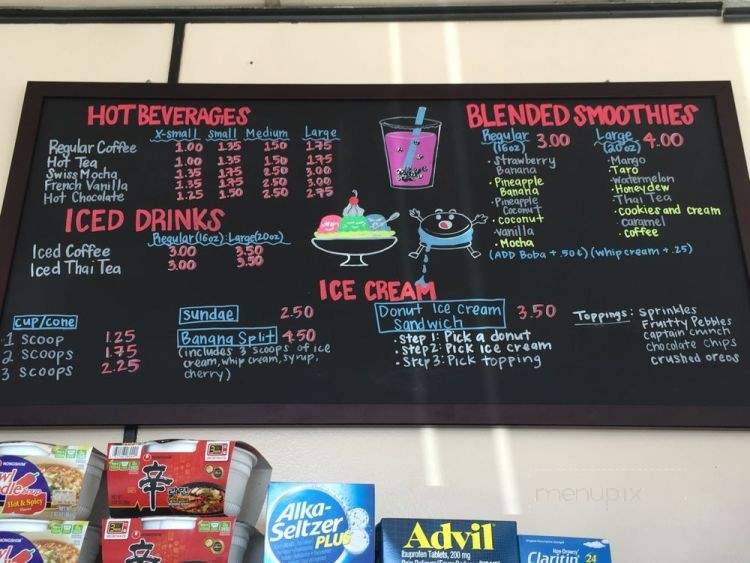 HOT BEVERAGES
X-small small Medium Large
Regular Coffee 1.00 1.35 1.50 1.75
Hot Tea 1.00 1.35 1.50 1.75
Swiss Mocha 1.35 1.75 2.50 3.00
French Vanilla 1.35 1.75 2.50 3.00
Hot Chocolate 1.25 1.50 2.50 2.75
ICED DRINKS
Regular (16oz) Large (20oz)
Iced Coffee 3.00 3.50
Iced Thai Tea 3.00 3.50
BLENDED SMOOTHIES
Regular (16oz) 3.00
Large (20oz) 4.00
• Strawberry
Banana
• Pineapple
Banana
• Pineapple
Coconut
• coconut
• vanilla
• Mocha
• Mango
• Taro
• Watermelon
• Honeydew
• Thai Tea
• cookies and cream
• caramel
• coffee
(ADD Boba + .50¢) (whip cream + .25)
ICE CREAM
cup/cone
1 SCOOP 1.25
2 SCOOPS 1.75
3 SCOOPS 2.25
sundae 2.50
Banana Split 4.50
(includes 3 scoops of ice
cream, whip cream, syrup,
cherry)
Donut Ice Cream
Sandwich 3.50
• Step 1: Pick a donut
• Step 2: Pick ice cream
• Step 3: Pick topping
Toppings: Sprinkles
Fruitty Pebbles
captain crunch
chocolate chips
crushed oreos
NONGSHIM
Hot & Spicy
辛
辛
NONGSHIM
Alka-
Seltzer
PLUS
Advil
Ibuprofen Tablets, 200 mg
Claritin 24
menupix